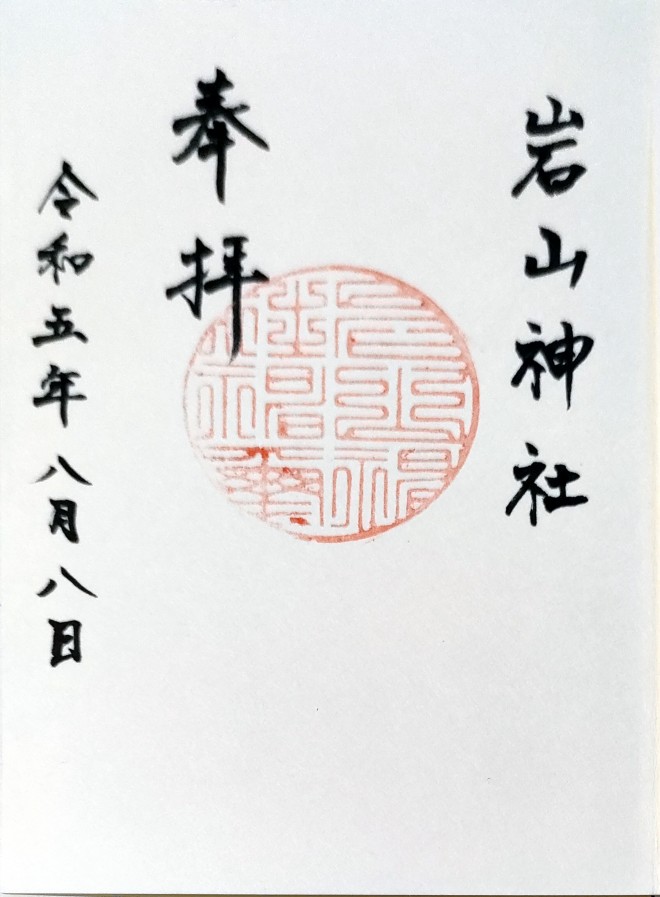 岩山神社
奉拝
令和五年八月八日